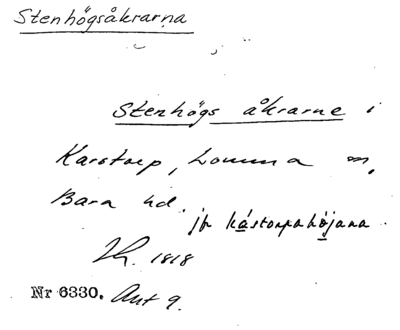 Stenhögsåkrarna
Stenhögs åkrarne i
Karstorp, Lomma m.
Bara hd.
jfr kástorpahöjana
1818
Nr 6330. Ant 9.